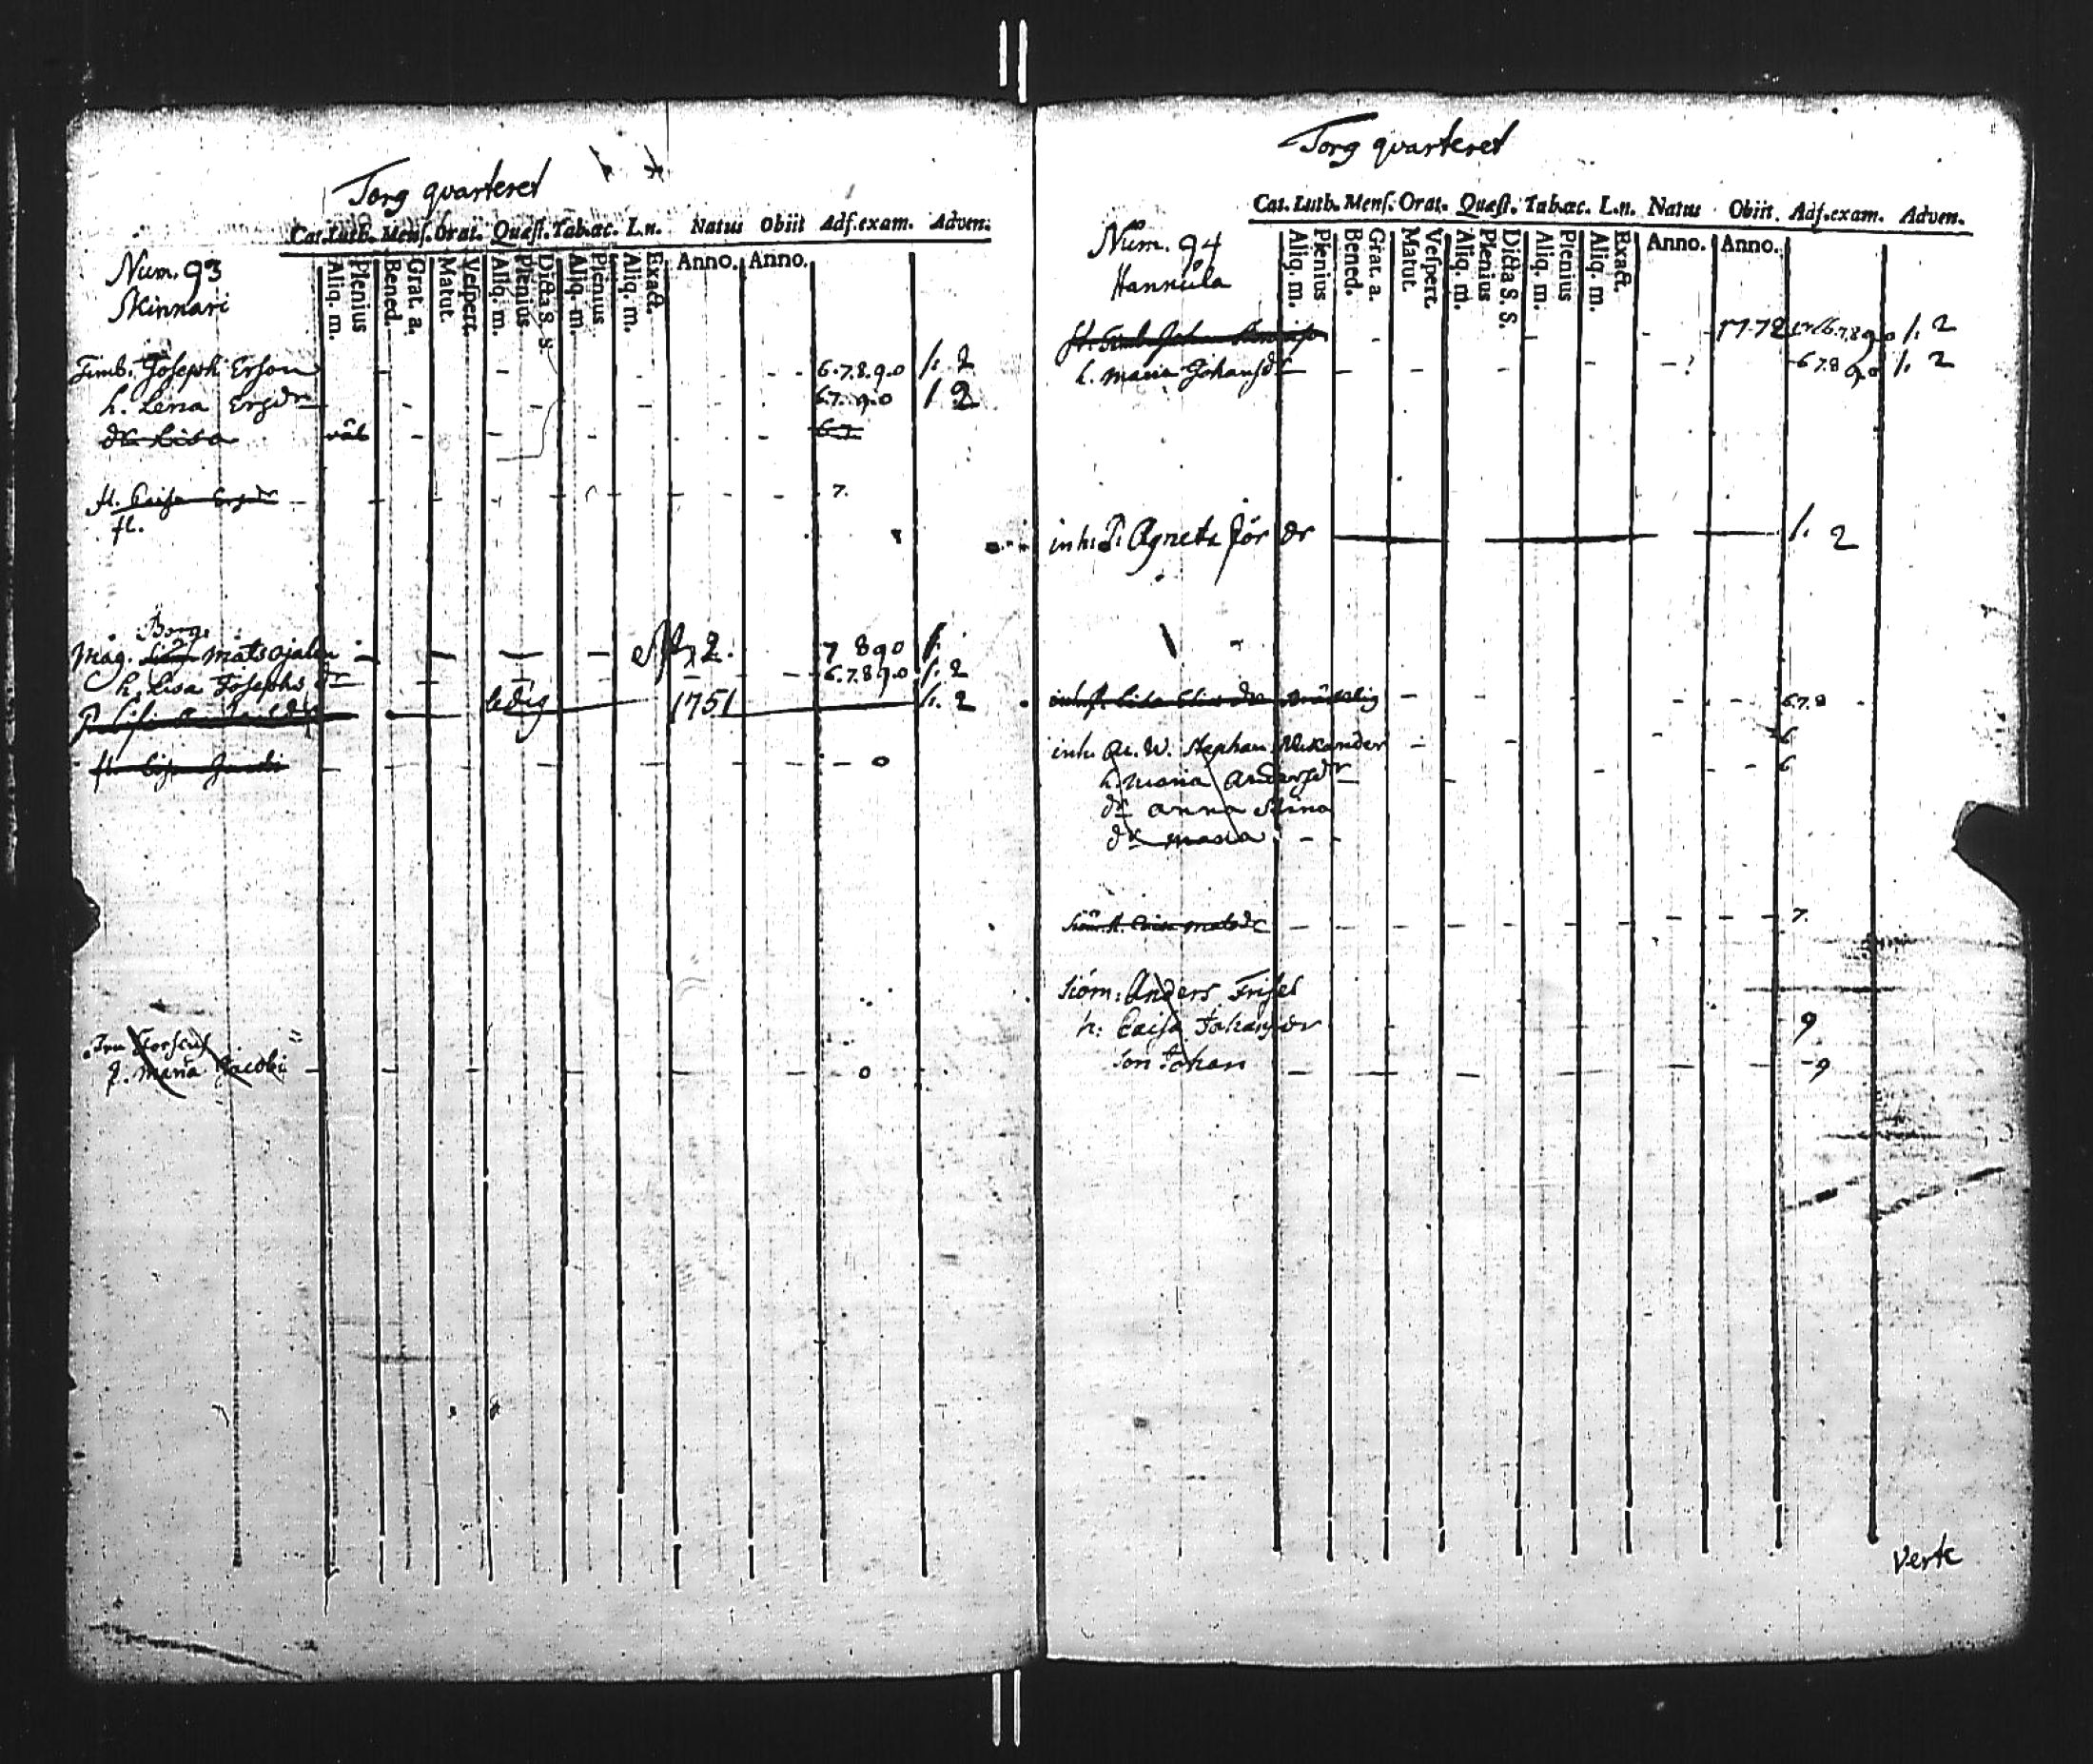 Torg quarteret
Cat. Luth. Mens. Orat. Quæst. Tab. œc. L.n. Natus Obiit Adf. exam. Adven.
Aliq. m. Plenius Bened. Grat. a. Matut. Vespert. Aliq. m. Plenius Dicta S. S. Aliq. m. Plenius Aliq. m. Exact. Anno. Anno.
Num. 93
Skinnari
Timb. Joseph Erson 6.7.8.9.0 1. 2
h. Lena Ersdr 6.7. 9.0 1 2
dr Lisa 6.7.
fl. Caisa Ersdr 7.
fl.
Borg.
Mag. Mats Ojala 7 8 9 0 1.
h. Lisa Josephs dr 6.7.8 9.0 1. 2
ledig 1751 1. 2
fl. Lisa Jacobi 0
Maria Jacobi 0
Torg quarteret
Cat. Luth. Mens. Orat. Quæst. Tab. œc. L.n. Natus Obiit. Adf. exam. Adven.
Aliq. m. Plenius Bened. Grat. a. Matut. Vespert. Aliq. m. Plenius Dicta S. S. Aliq. m. Plenius Aliq. m. Exact. Anno. Anno.
Num. 94
Hannula
1772 1. 2
h. Maria Johansdr 6 7 8 9.0 1. 2
inh. P. Agneta Jör dr 1. 2
inh. fl. Lisa 6.7.8
inh. Stephan 6
h. Maria Andersdr 6
dr Anna Stina
dr Maria
Caisa Matsdr 7.
Siöm: Anders Frisel
h: Caisa Johansdr 9
son Johan 9
Verte